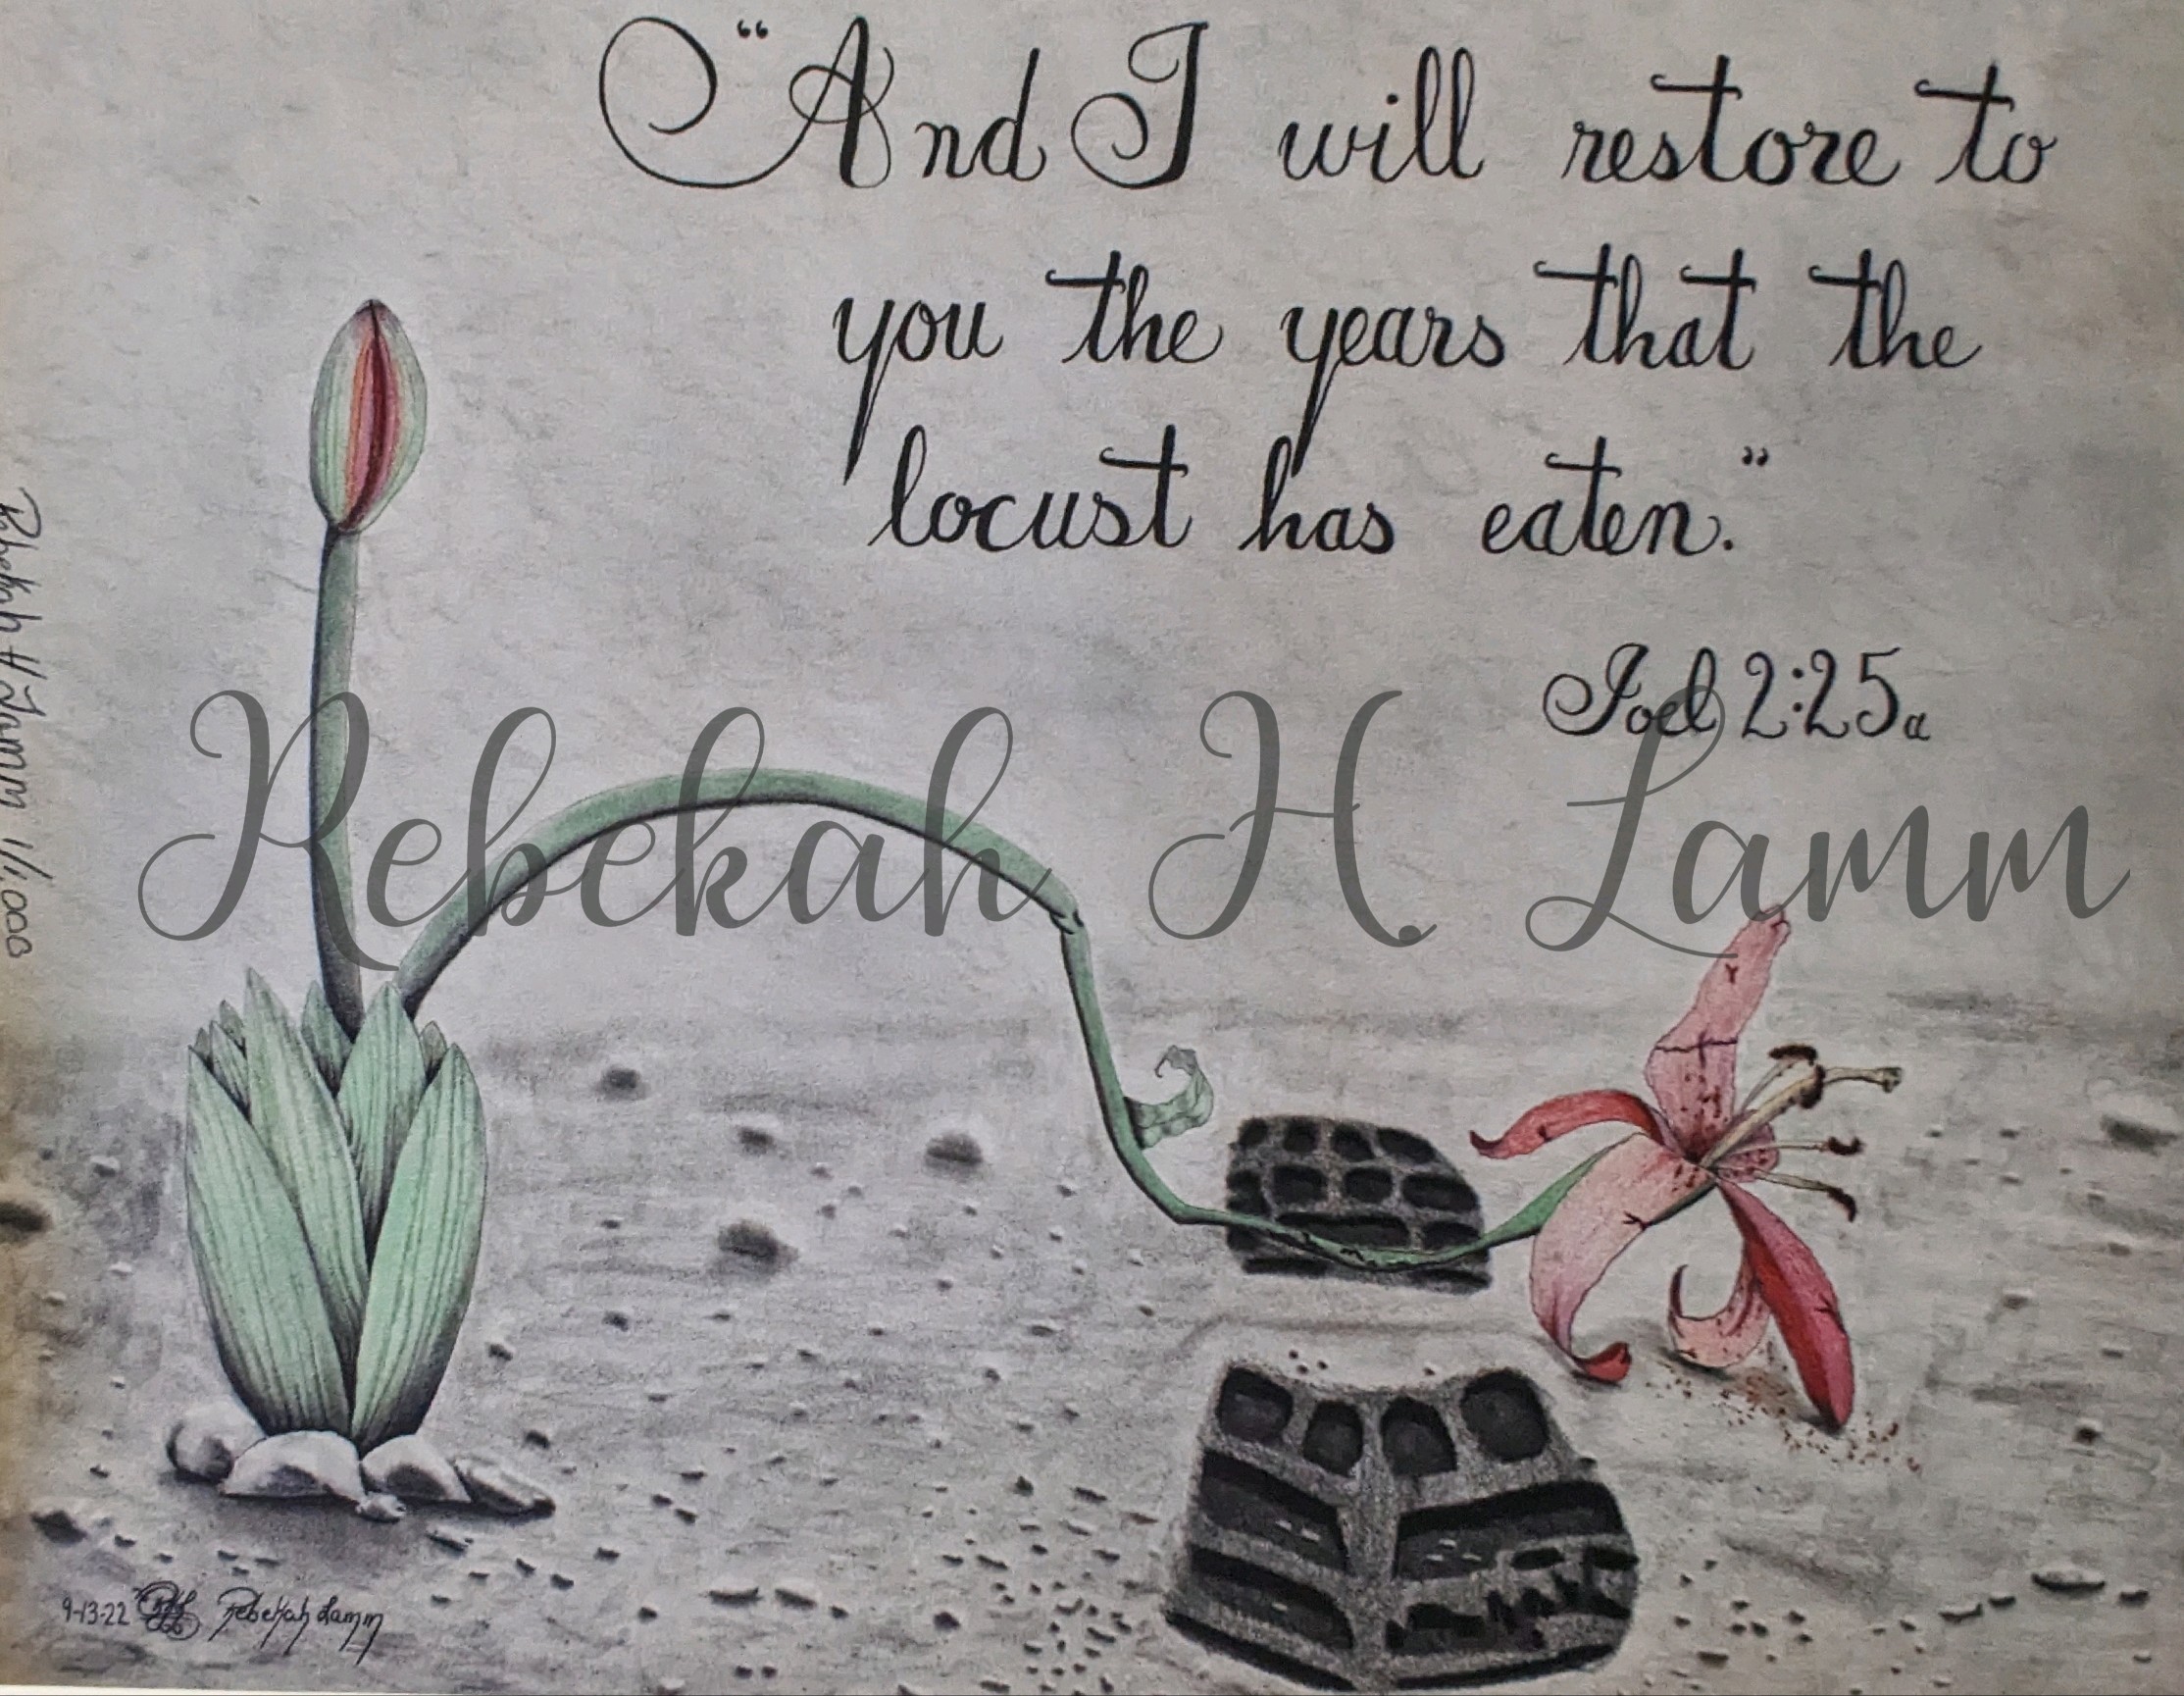 “And I will restore to
you the years that the
locust has eaten.”
Joel 2:25a
Rebekah H. Lamm
Rebekah H Lamm 1/1,000
9-13-22 RHL Rebekah Lamm